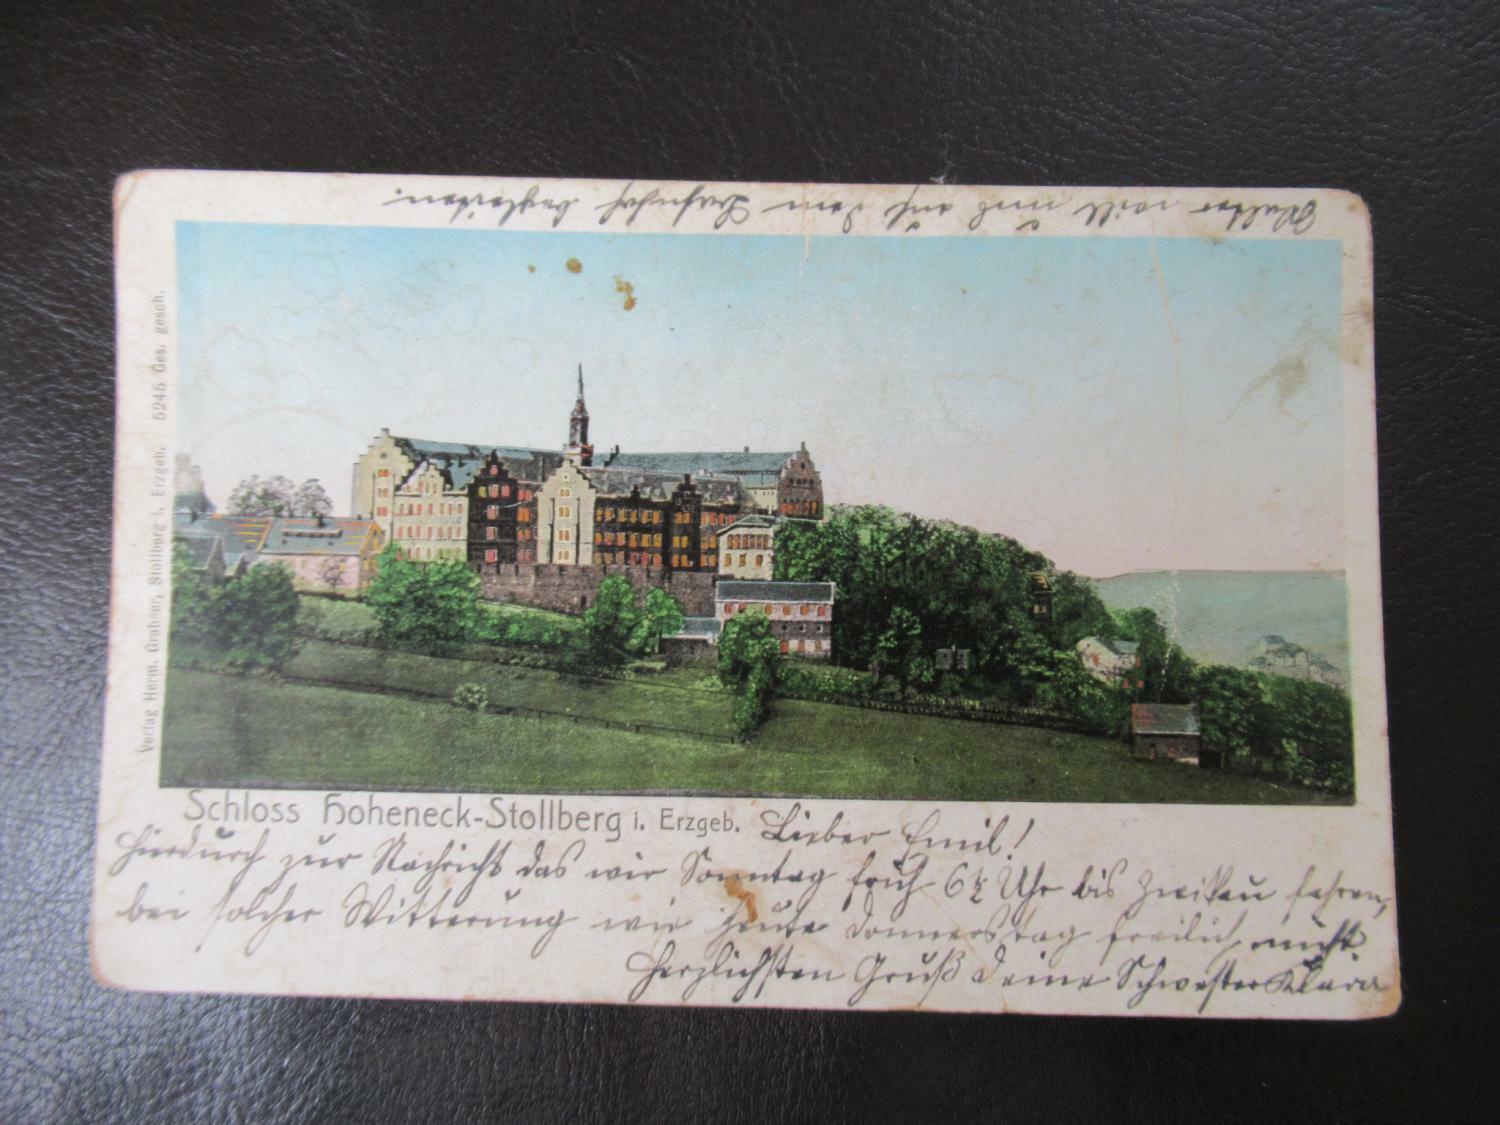 Schloss Hoheneck-Stollberg i. Erzgeb.
Lieber Emil!
Hierdurch zur Nachricht das wir Sonntag früh 6½ Uhr bis Zwickau fahren,
bei solcher Witterung wie heute Donnerstag freilich nicht.
Herzlichsten Gruß Deine Schwester Klara
Walter will uns auf dem Bahnhof begleiten.
Verlag Herm. Grabner, Stollberg i. Erzgeb. 5245 Ges. gesch.